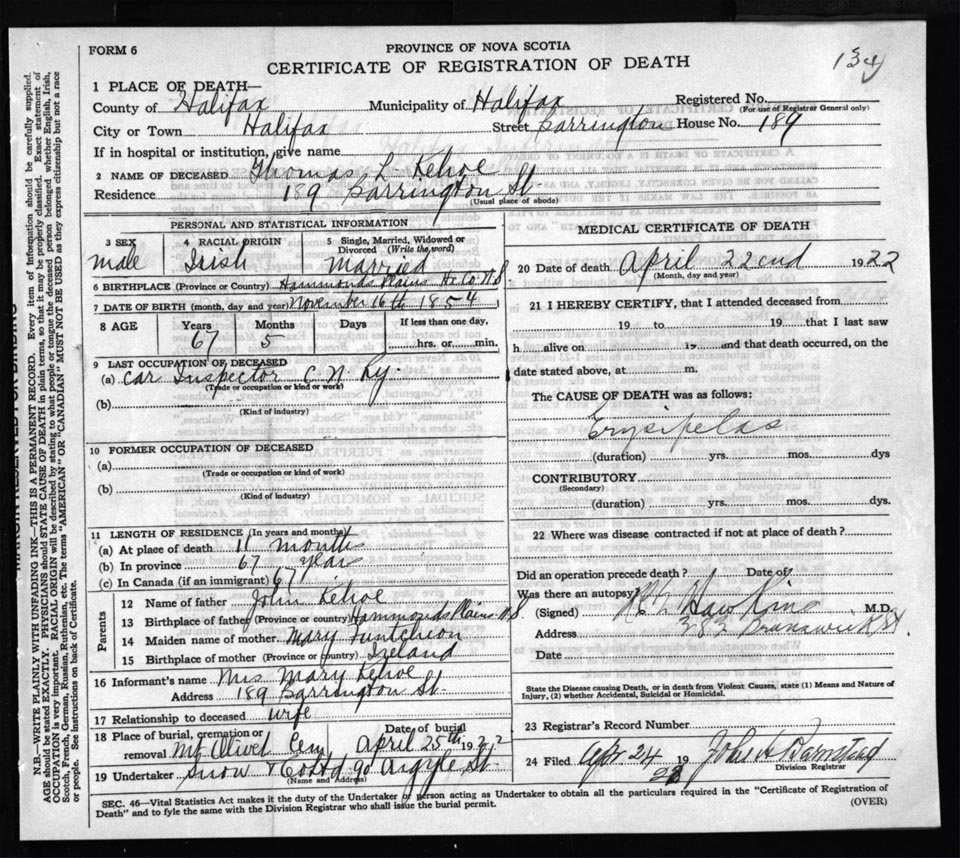 FORM 6
PROVINCE OF NOVA SCOTIA
134
CERTIFICATE OF REGISTRATION OF DEATH
1 PLACE OF DEATH—
County of Halifax Municipality of Halifax Registered No.
(For use of Registrar General only)
City or Town Halifax Street Barrington House No. 189
If in hospital or institution, give name
2 NAME OF DECEASED Thomas L. Kehoe
Residence 189 Barrington St.
(Usual place of abode)
PERSONAL AND STATISTICAL INFORMATION
3 SEX 4 RACIAL ORIGIN 5 Single, Married, Widowed or Divorced (Write the word)
male Irish Married
6 BIRTHPLACE (Province or Country) Hammonds Plains Hx Co N.S
7 DATE OF BIRTH (month, day and year) November 16th 1854
8 AGE Years Months Days If less than one day,
67 5 hrs. or min.
9 LAST OCCUPATION OF DECEASED
(a) Car Inspector C. N. Ry.
(Trade or occupation or kind of work)
(b)
(Kind of industry)
10 FORMER OCCUPATION OF DECEASED
(a)
(Trade or occupation or kind of work)
(b)
(Kind of industry)
11 LENGTH OF RESIDENCE (In years and months)
(a) At place of death 11 months
(b) In province 67 year
(c) In Canada (if an immigrant) 67
Parents
12 Name of father John Kehoe
13 Birthplace of father (Province or country) Hammonds Plains N.S
14 Maiden name of mother Mary
15 Birthplace of mother (Province or country) Ireland
16 Informant's name Mrs Mary Kehoe
Address 189 Barrington St.
17 Relationship to deceased wife
18 Place of burial, cremation or removal Mt Olivet Cem Date of burial April 25th 1922
19 Undertaker Snow & Co Ltd 90 Argyle St.
(Name and Address)
MEDICAL CERTIFICATE OF DEATH
20 Date of death April 22nd 1922
(Month, day and year)
21 I HEREBY CERTIFY, that I attended deceased from
19 to 19 that I last saw
h alive on 19 and that death occurred, on the
date stated above, at m.
The CAUSE OF DEATH was as follows:
Erysipelas
(duration) yrs. mos. dys
CONTRIBUTORY
(Secondary)
(duration) yrs. mos. dys.
22 Where was disease contracted if not at place of death?
Did an operation precede death? Date of
Was there an autopsy?
(Signed) Hawkins M.D.
Address 383 Brunswick St
Date
State the Disease causing Death, or in death from Violent Causes, state (1) Means and Nature of
Injury, (2) whether Accidental, Suicidal or Homicidal.
23 Registrar's Record Number
24 Filed Apr. 24 19 22 John A Barnstead
Division Registrar
SEC. 46—Vital Statistics Act makes it the duty of the Undertaker or person acting as Undertaker to obtain all the particulars required in the "Certificate of Registration of
Death" and to fyle the same with the Division Registrar who shall issue the burial permit.
(OVER)
MARGIN RESERVED FOR BINDING
N.B.—WRITE PLAINLY WITH UNFADING INK—THIS IS A PERMANENT RECORD. Every item of information should be carefully supplied.
AGE should be stated EXACTLY. PHYSICIANS should STATE CAUSE OF DEATH in plain terms, so that it may be properly classified. Exact statement of
OCCUPATION is very important. RACIAL ORIGIN will be described by stating to what people or tongue the deceased person belonged whether English, Irish,
Scotch, French, German, Russian, Ruthenian, etc. The terms "AMERICAN" OR "CANADIAN" MUST NOT BE USED as they express citizenship but not a race
or people. See instructions on back of Certificate.